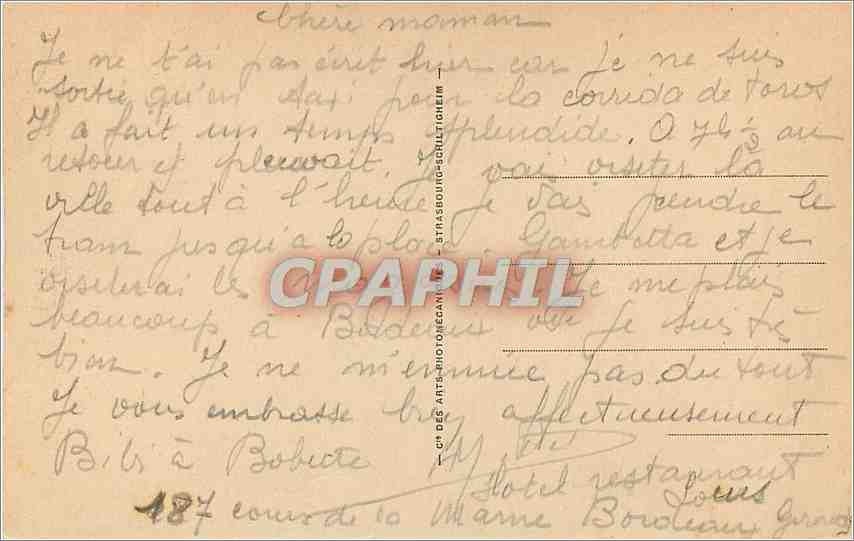 Chère maman
Je ne t'ai pas écrit hier car je ne suis
sortie qu'en taxi pour la corrida de toros
Il a fait un temps splendide. A 7h ½ au
retour il pleuvait. Je vais visiter la
ville tout à l'heure je vais prendre le
tram jusqu'à la place Gambetta et je
visiterai les Je me plais
beaucoup à Bordeaux où je suis très
bien. Je ne m'ennuie pas du tout
Je vous embrasse bien affectueusement
Bibi à Boberte
Hotel restaurant
Louis
187 cours de la Marne Bordeaux Gironde
— Cie DES ARTS PHOTOMÉCANIQUES - STRASBOURG-SCHILTIGHEIM —
CPAPHIL